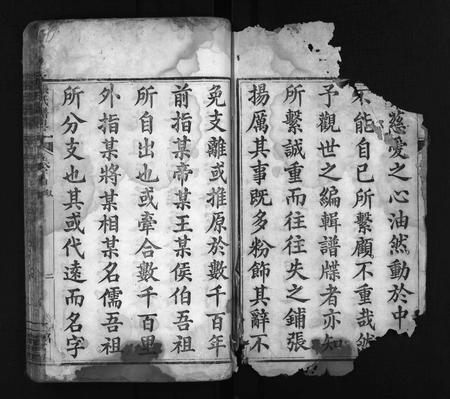 慈愛之心油然動於中
不能自已所繫顧不重哉然
予觀世之編輯譜牒者亦知
所繫誠重而往往失之鋪張
揚厲其事既多粉飾其辭不
免支離或推原於數千百年
前指某帝某王某侯伯吾祖
所自出也或牽合數千百里
外指某將某相某名儒吾祖
所分支也其或代逺而名字